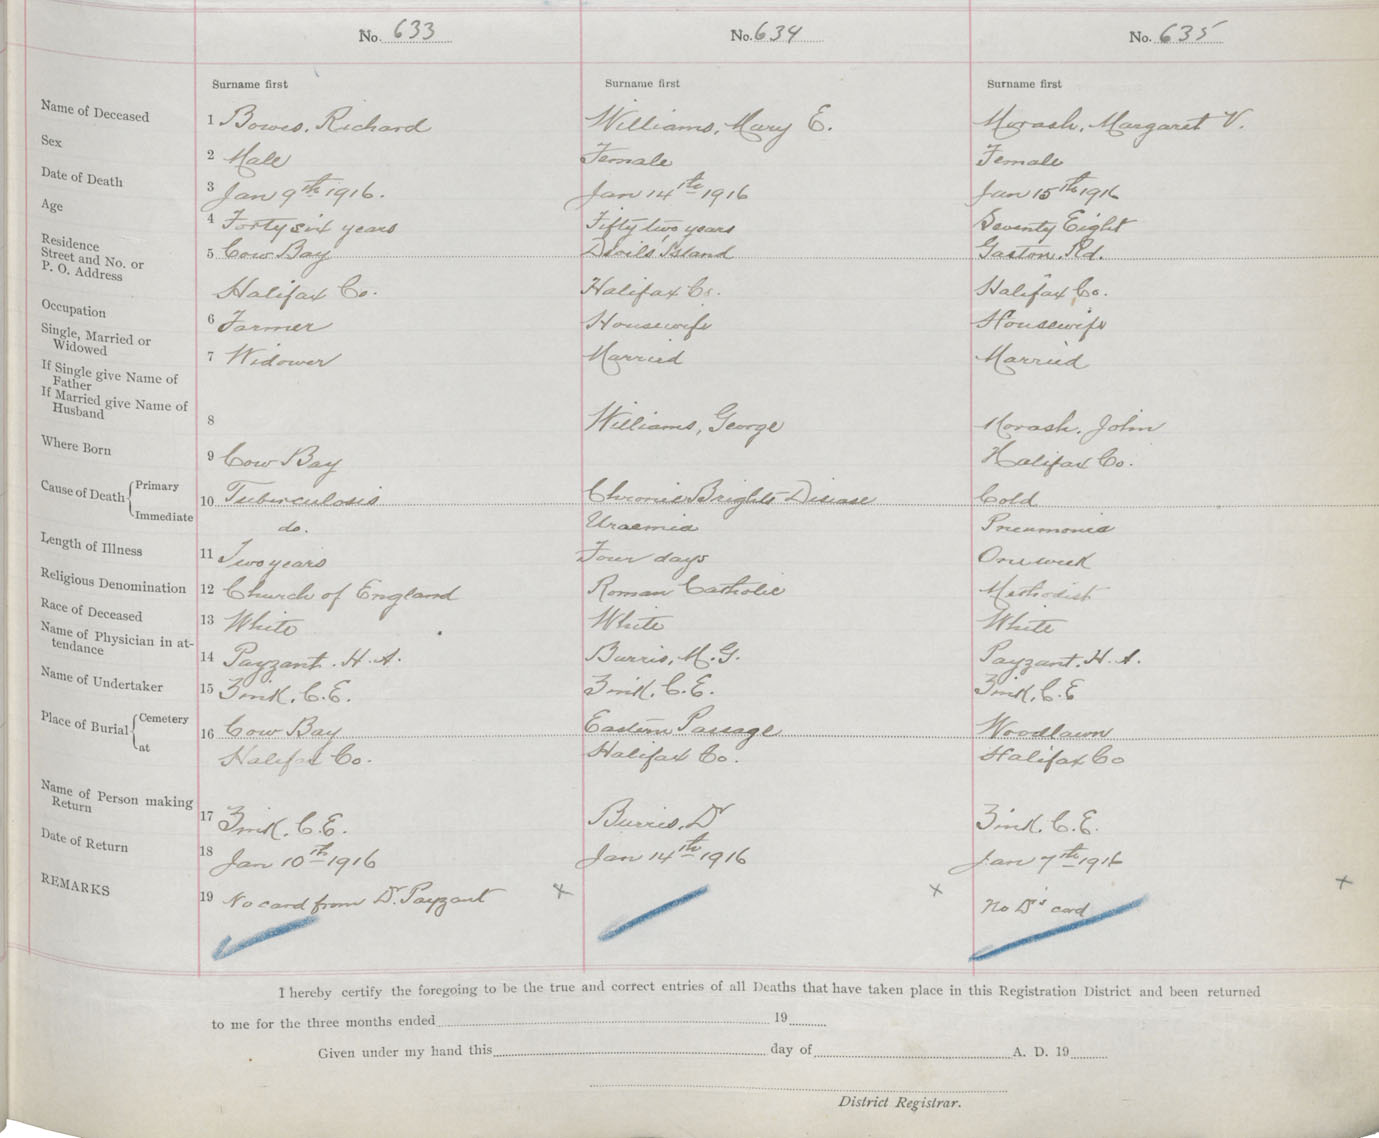 No. 633 No. 634 No. 635
Surname first Surname first Surname first
Name of Deceased 1 Bowes, Richard Williams, Mary E. Morash, Margaret V.
Sex 2 Male Female Female
Date of Death 3 Jan 9th 1916. Jan 14th 1916 Jan 15th 1916
Age 4 Forty six years Fifty two years Seventy Eight
Residence
Street and No. or
P. O. Address 5 Cow Bay Devils Island Gaston Rd.
Halifax Co. Halifax Co. Halifax Co.
Occupation 6 Farmer Housewife Housewife
Single, Married or
Widowed 7 Widower Married Married
If Single give Name of
Father
If Married give Name of
Husband 8 Williams, George Morash, John
Where Born 9 Cow Bay Halifax Co.
Cause of Death { Primary 10 Tuberculosis Chronic Brights Disease Cold
Immediate do. Uraemia Pneumonia
Length of Illness 11 Two years Four days One week
Religious Denomination 12 Church of England Roman Catholic Methodist
Race of Deceased 13 White White White
Name of Physician in at-
tendance 14 Payzant. H. A. Burris, M. G. Payzant. H. A.
Name of Undertaker 15 Zink, C. E. Zink, C. E. Zink, C. E
Place of Burial { Cemetery 16 Cow Bay Eastern Passage Woodlawn
at Halifax Co. Halifax Co. Halifax Co
Name of Person making
Return 17 Zink, C. E. Burris, Dr Zink, C. E.
Date of Return 18 Jan 10th 1916 Jan 14th 1916 Jan 7th 1916
REMARKS 19 No card from Dr. Payzant x x No Dr's card x
I hereby certify the foregoing to be the true and correct entries of all Deaths that have taken place in this Registration District and been returned
to me for the three months ended 19
Given under my hand this day of A. D. 19
District Registrar.